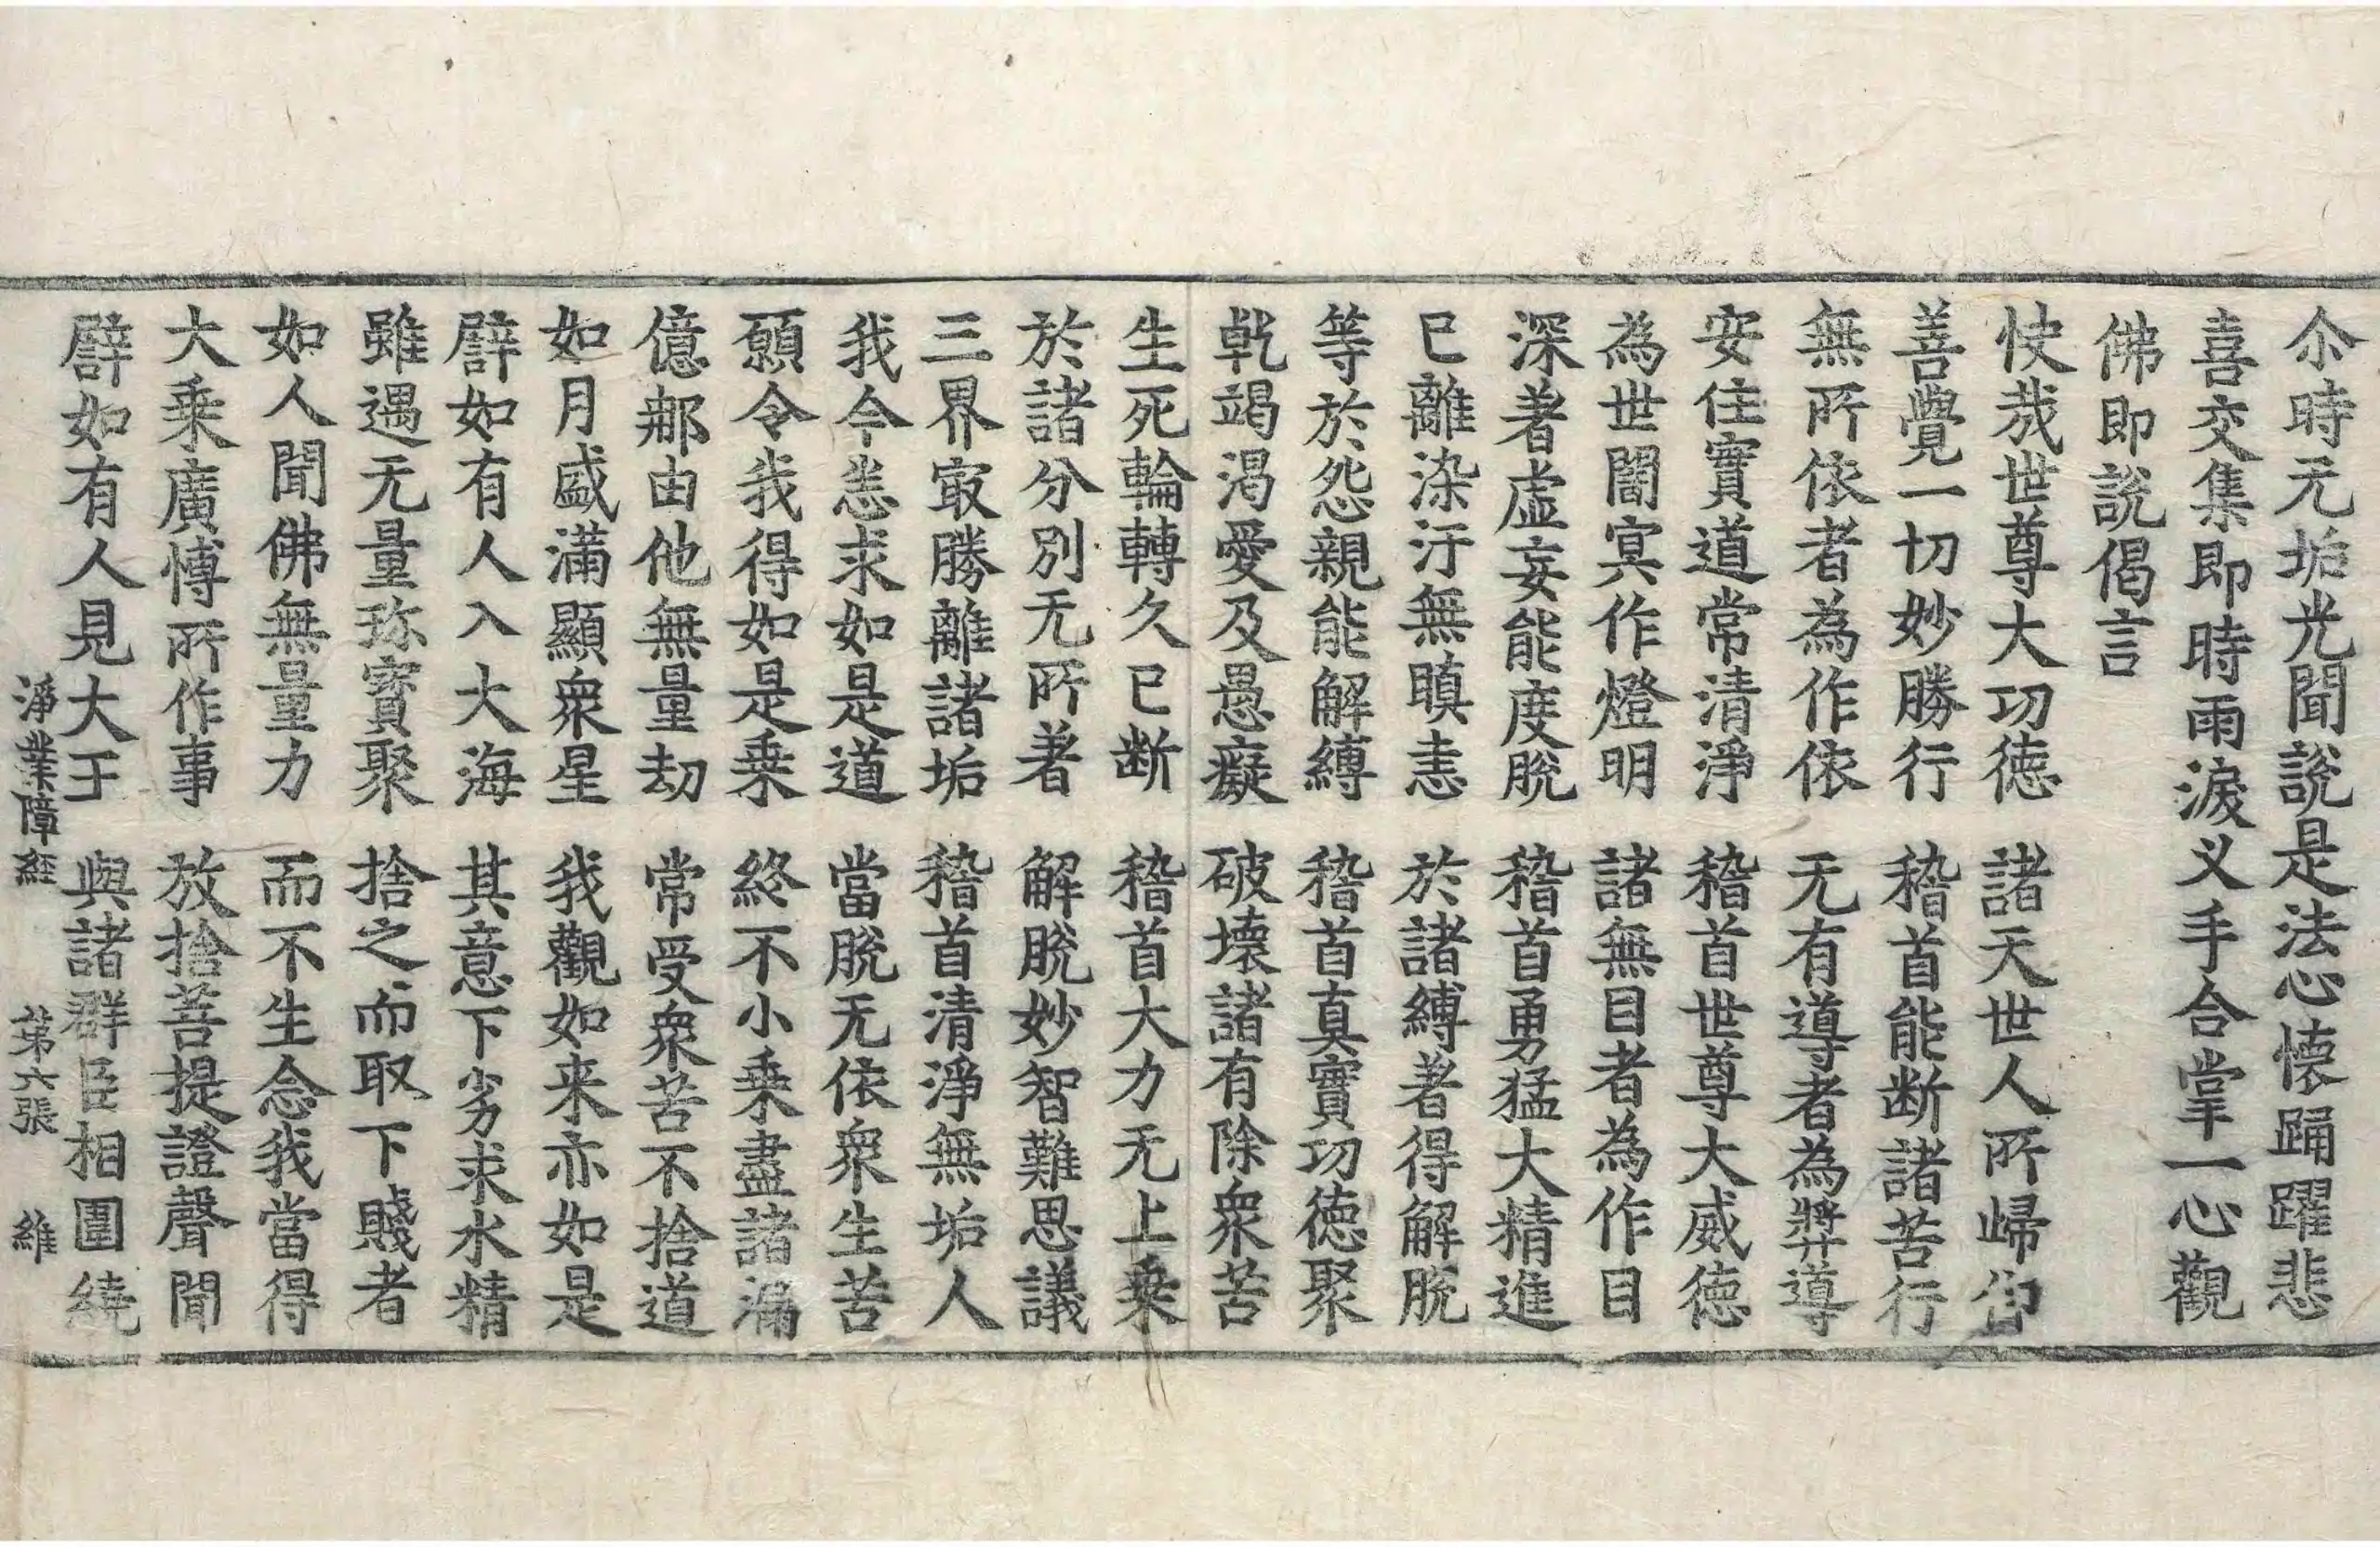 尒時无垢光聞說是法心懷踊躍悲
喜交集即時雨淚义手合掌一心觀
佛即說偈言
快㢤世尊大功德　諸天世人所歸仰
善覺一切妙勝行　稽首能断諸苦行
無所依者為作依　无有導者為㢡導
安住實道常清淨　稽首世尊大威德
為世闇冥作燈明　諸無目者為作目
深著虛妄能度脫　稽首勇猛大精進
已離染汙無瞋恚　於諸縛著得解脫
等於怨親能解縛　稽首真實功德聚
乾竭渴愛及愚癡　破壞諸有除衆苦
生死輪轉久已断　稽首大力无上乗
於諸分別无所著　解脫妙智難思議
三界㝡勝離諸垢　稽首清淨無垢人
我今恙求如是道　當脫无依衆生苦
願令我得如是乗　終不小乗盡諸漏
億𨚗由他無量劫　常受衆苦不捨道
如月盛滿顯衆星　我觀如来亦如是
譬如有人入大海　其意下劣求水精
雖遇无量珎寶聚　捨之而取下賤者
如人聞佛無量力　而不生念我當得
大乗廣愽所作事　放捨菩提證聲聞
譬如有人見大王　與諸群臣相圍繞
淨業障經　第六張　維